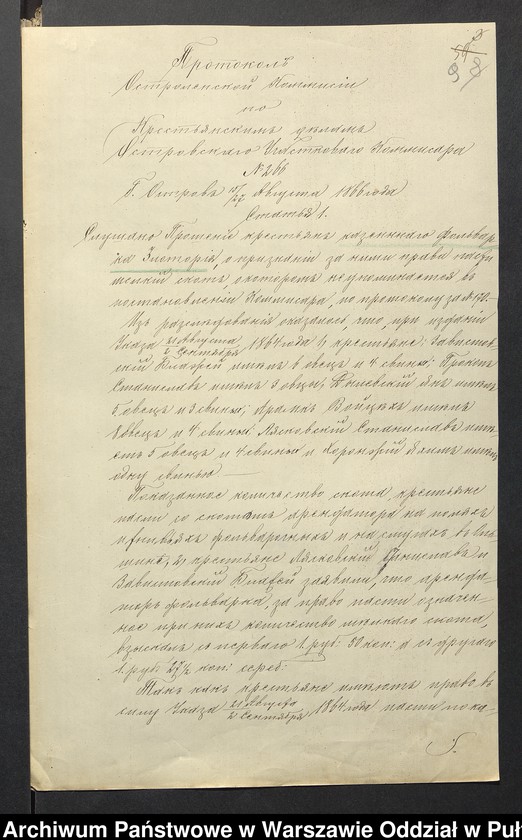 Протоколъ
Остроленской Коммисіи
по
Крестьянскимъ дѣламъ
Островскаго Участковаго Коммисара
№ 266
Г. Островъ 15/27 Августа 1866 года
Статья 1.
Слушано Прошеніе крестьянъ казеннаго фольвар
ка Злоторія, о признаніи за ними права пасти
мелкій скотъ, о которомъ не упоминается въ
постановленіи Коммисара, по протоколу за №
Изъ разслѣдованія оказалось, что, при изданіи
Указа 21 Августа / 2 Сентября 1864 года 1, крестьяне:
овецъ и 4 свиньи; Прокопъ
Станиславъ имѣлъ 3 овцы; Янъ имѣлъ
5 овецъ и 3 свиньи; Войцѣхъ имѣлъ
8 овецъ и 4 свиньи; Лясковскій Станиславъ имѣ
етъ 5 овецъ и 4 свиньи и имѣлъ
одну свинью
Показанное количество скота, крестьяне
пасли со скотомъ арендатора на поляхъ
и фольварочныхъ и на лугахъ въ
2, крестьяне Лясковскій Станиславъ и
заявили, что аренда-
торъ фольварка, за право пасти означен-
ное при нихъ количество мелкаго скота,
взыскалъ съ перваго 1 руб: 30 коп: а съ другаго
1 руб: 27½ коп: сереб:
Такъ какъ крестьяне имѣютъ право въ
силу Указа 21 Августа / 2 Сентября 1864 года пасти по ка-
Archiwum Państwowe w Warszawie Oddział w Puł